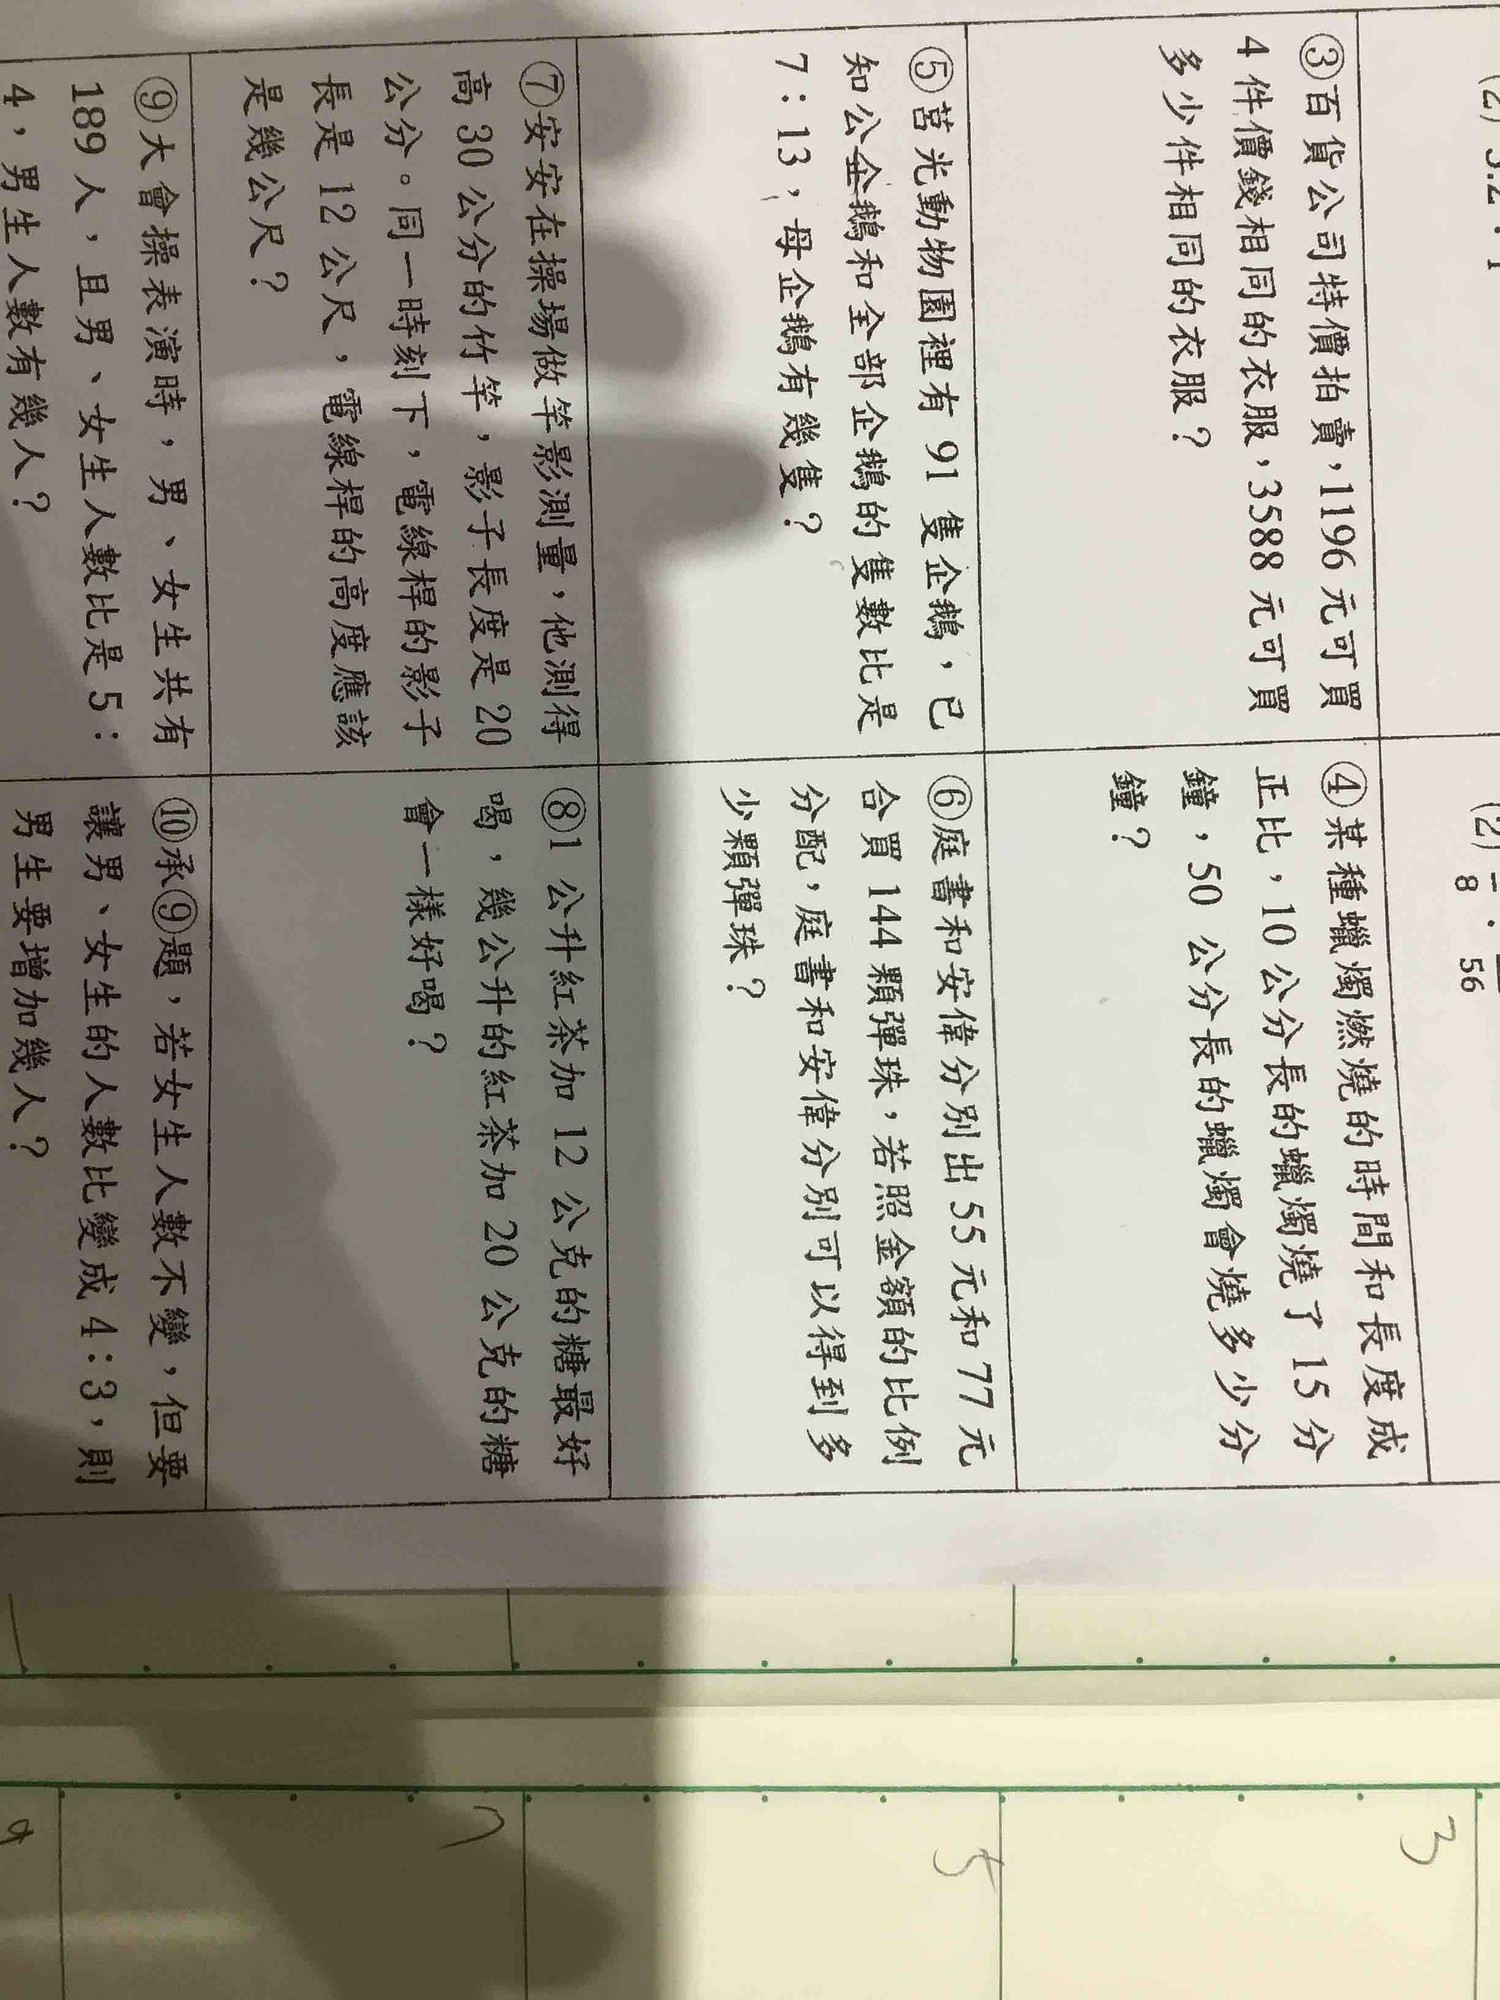 (2)
③百貨公司特價拍賣，1196元可買
4件價錢相同的衣服，3588元可買
多少件相同的衣服？
④某種蠟燭燃燒的時間和長度成
正比，10公分長的蠟燭燒了15分
鐘，50公分長的蠟燭會燒多少分
鐘？
⑤莒光動物園裡有91隻企鵝，已
知公企鵝和全部企鵝的隻數比是
7：13，母企鵝有幾隻？
⑥庭書和安偉分別出55元和77元
合買144顆彈珠，若照金額的比例
分配，庭書和安偉分別可以得到多
少顆彈珠？
⑦安安在操場做竿影測量，他測得
高30公分的竹竿，影子長度是20
公分。同一時刻下，電線桿的影子
長是12公尺，電線桿的高度應該
是幾公尺？
⑧1公升紅茶加12公克的糖最好
喝，幾公升的紅茶加20公克的糖
會一樣好喝？
⑨大會操表演時，男、女生共有
189人，且男、女生人數比是5：
4，男生人數有幾人？
⑩承⑨題，若女生人數不變，但要
讓男、女生的人數比變成4：3，則
男生要增加幾人？
3
5
7
9